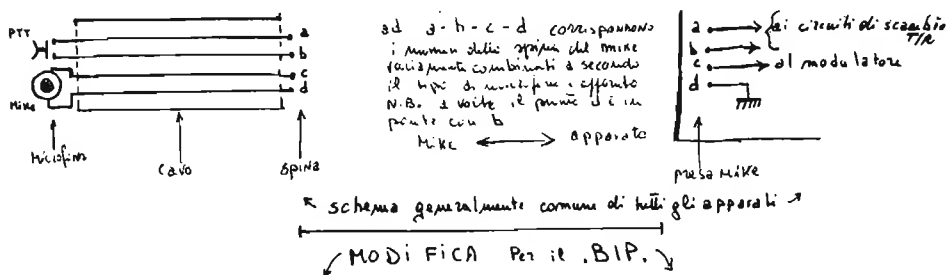 PTT
Mike
Microfono
cavo
spina
a
b
c
d
ad a-b-c-d corrispondono
i numeri della spina del mike
variamente combinati a secondo
il tipo di microfono e apparato
N.B. a volte il punto è in
ponte con b
Mike ⟷ apparato
a
b
c
d
ai circuiti di scambio
T/R
al modulatore
presa Mike
schema generalmente comune di tutti gli apparati
MODIFICA Per il .BIP.